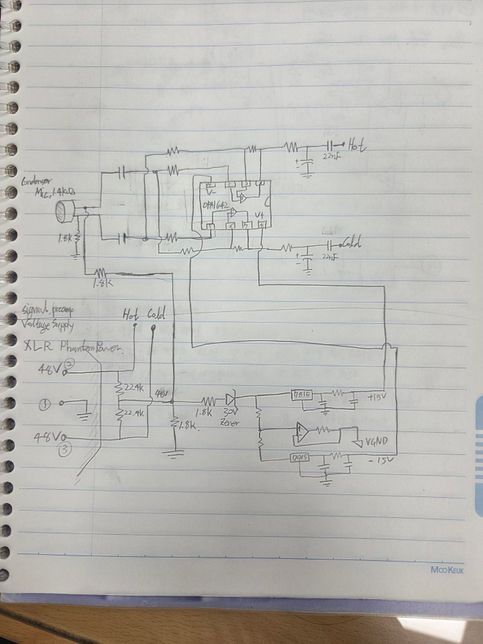 Hot
22nF
Condenser
Mic, 1.4kΩ
V-
OPA1642
V+
1.8k
Cold
22nF
1.8K
signal, preamp
Voltage Supply
Hot Cold
XLR Phantom Power
48V ②
22.4k
①
22.4k
48V
1.8K
30V
Zener
+15V
1.8K.
VGND
48V
③
-15V
MOOKEUK